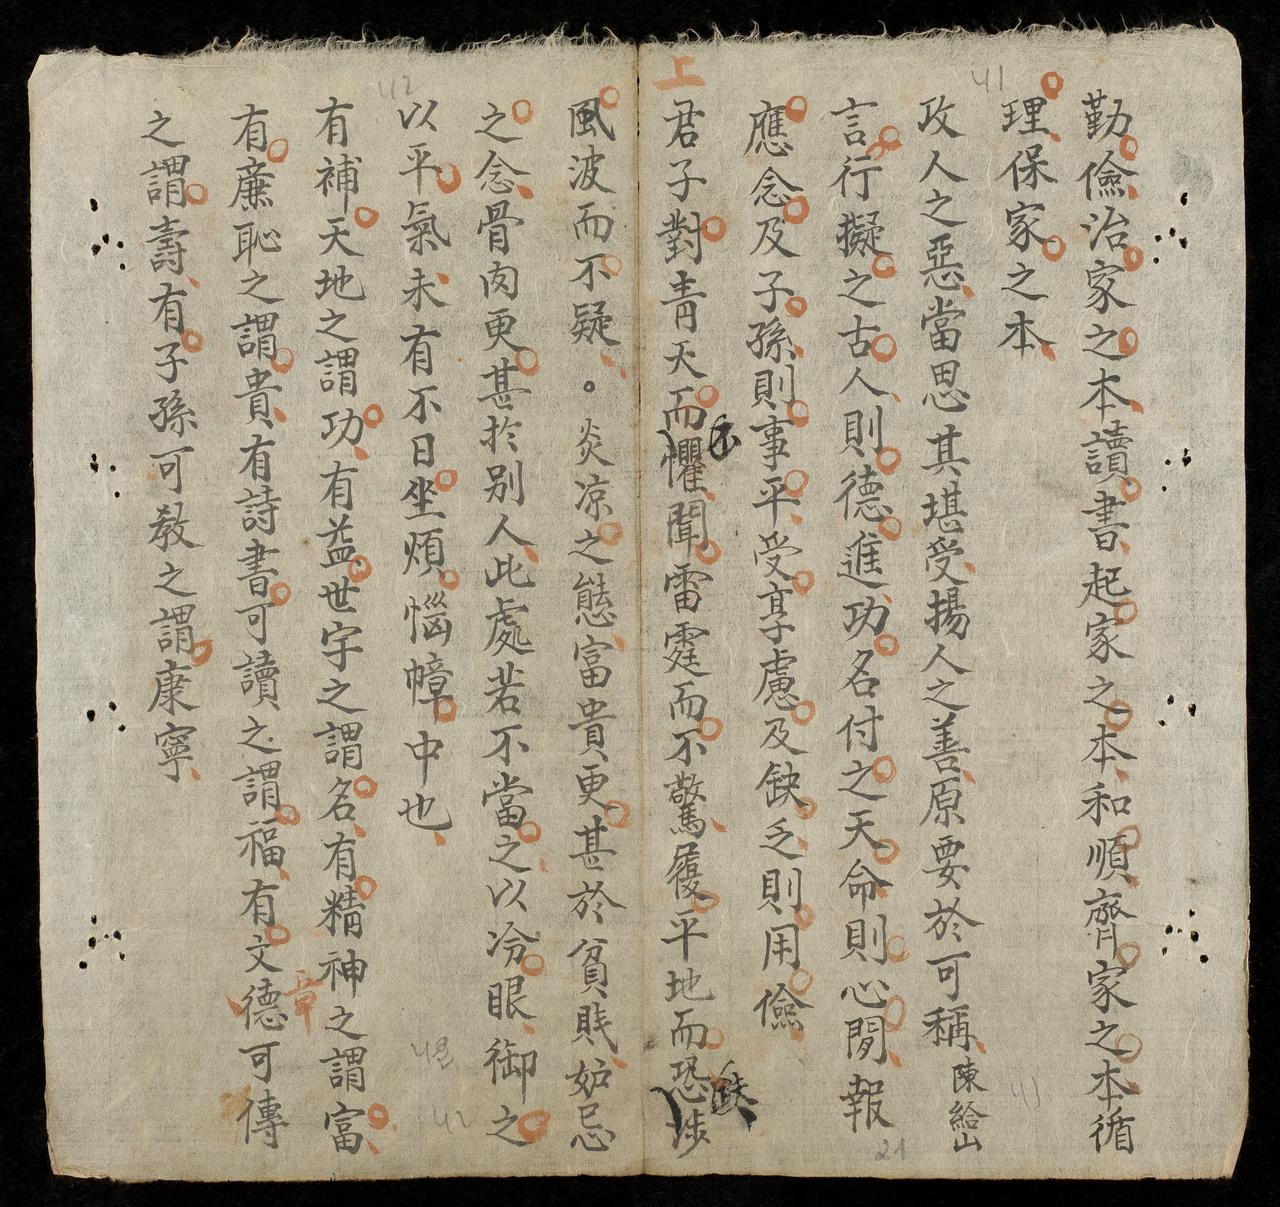 勤儉治家之本讀書起家之本和順齊家之本循
理保家之本
攻人之惡當思其堪受揚人之善原要於可稱 陳給山
言行擬之古人則德進功名付之天命則心閒報
應念及子孫則事平受享慮及缺乏則用儉
上
君子對青天而懼聞雷霆而不驚履平地而恐涉
風波而不疑。炎凉之態富貴更甚於貧賎妒忌
之念骨肉更甚於别人此處若不當之以冷眼御之
以平氣未有不日坐煩惱幛中也
有補天地之謂功有益世宇之謂名有精神之謂富
有亷恥之謂貴有詩書可讀之謂福有文德可傳
章
之謂壽有子孫可教之謂康寧
42
41
21